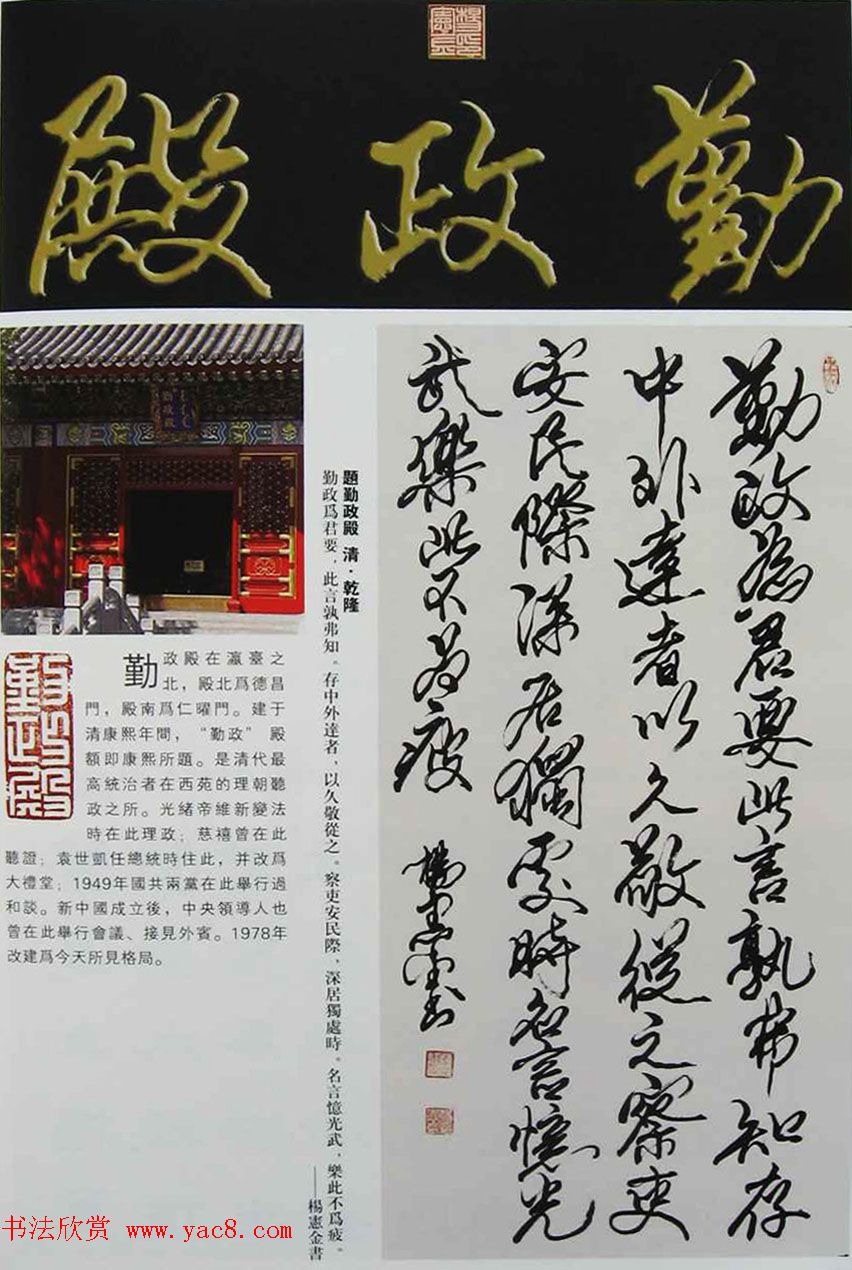 勤政殿
勤政爲君要此言孰弗知存
中外達者以久敬從之察吏
安民際深居獨處時名言憶光
武樂此不爲疲
楊憲金書
題勤政殿 清·乾隆
勤政爲君要，此言孰弗知。存中外達者，以久敬從之。察吏安民際，深居獨處時。名言憶光武，樂此不爲疲。
——楊憲金書
勤政殿
勤政殿在瀛臺之
北，殿北爲德昌
門，殿南爲仁曜門。建于
清康熙年間，“勤政”殿
額即康熙所題。是清代最
高統治者在西苑的理朝聽
政之所。光緒帝維新變法
時在此理政；慈禧曾在此
聽證；袁世凱任總統時住此，并改爲
大禮堂；1949年國共兩黨在此舉行過
和談。新中國成立後，中央領導人也
曾在此舉行會議、接見外賓。1978年
改建爲今天所見格局。
书法欣赏 www.yac8.com